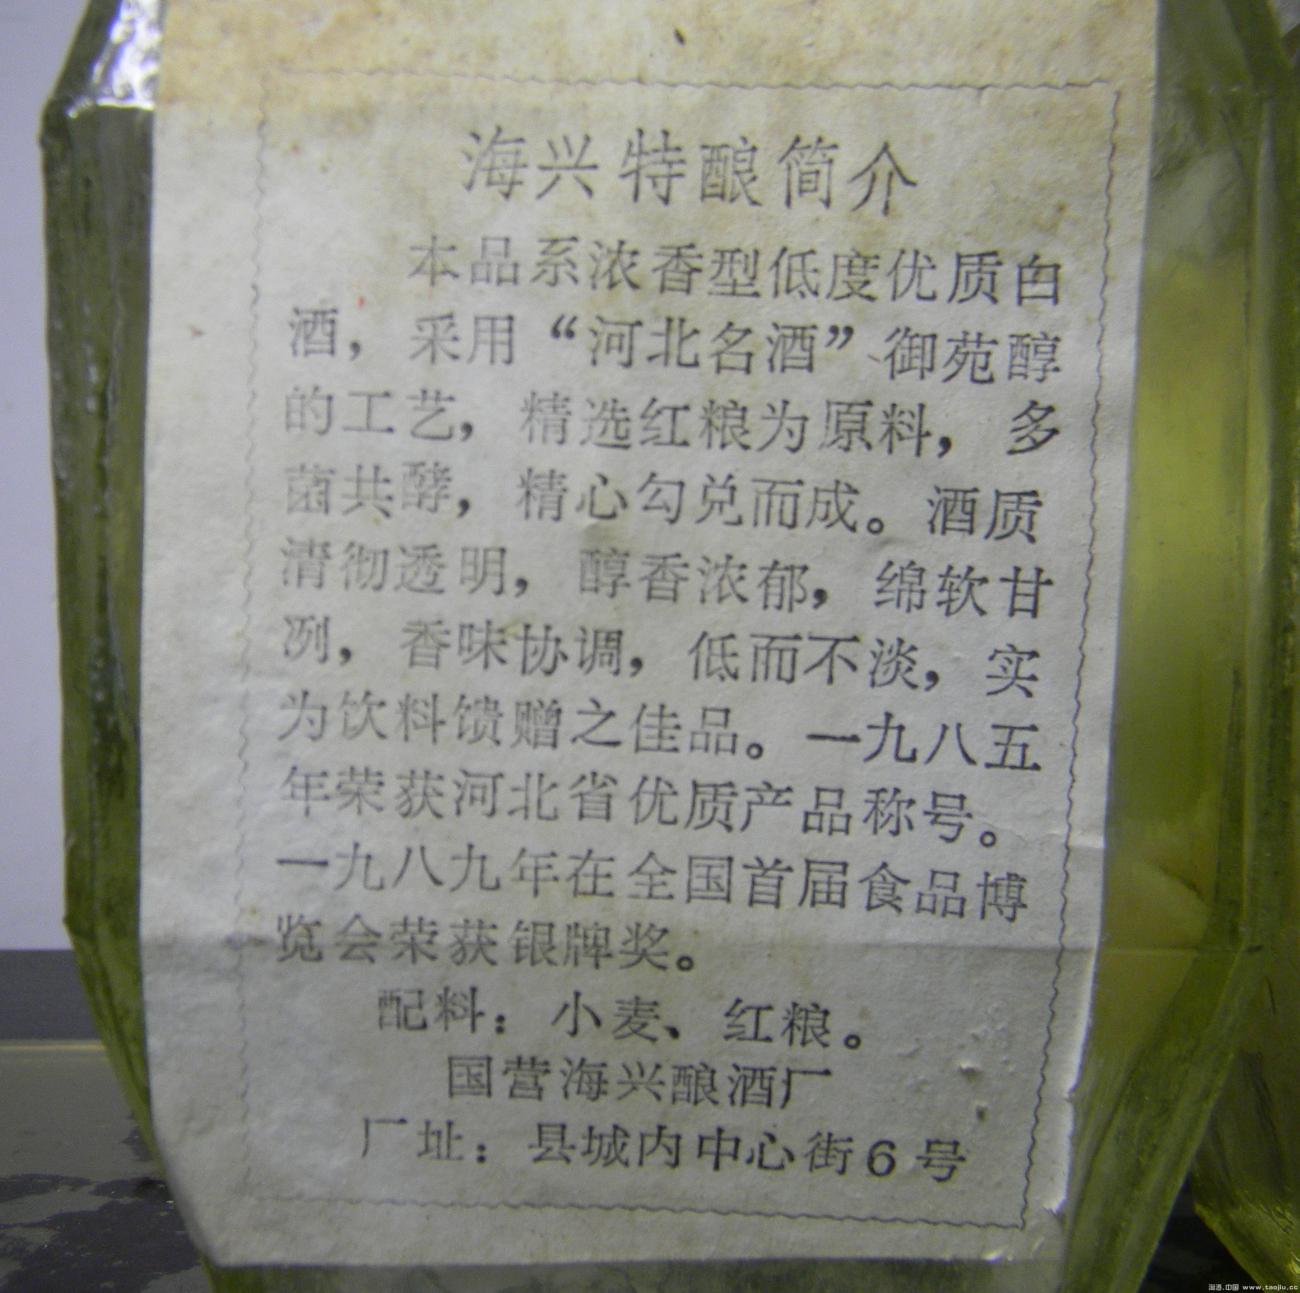 海兴特酿简介
本品系浓香型低度优质白
酒，采用“河北名酒”御苑醇
的工艺，精选红粮为原料，多
菌共酵，精心勾兑而成。酒质
清彻透明，醇香浓郁，绵软甘
冽，香味协调，低而不淡，实
为饮料馈赠之佳品。一九八五
年荣获河北省优质产品称号。
一九八九年在全国首届食品博
览会荣获银牌奖。
配料：小麦、红粮。
国营海兴酿酒厂
厂址：县城内中心街6号
淘酒.中国 www.taojiu.cc